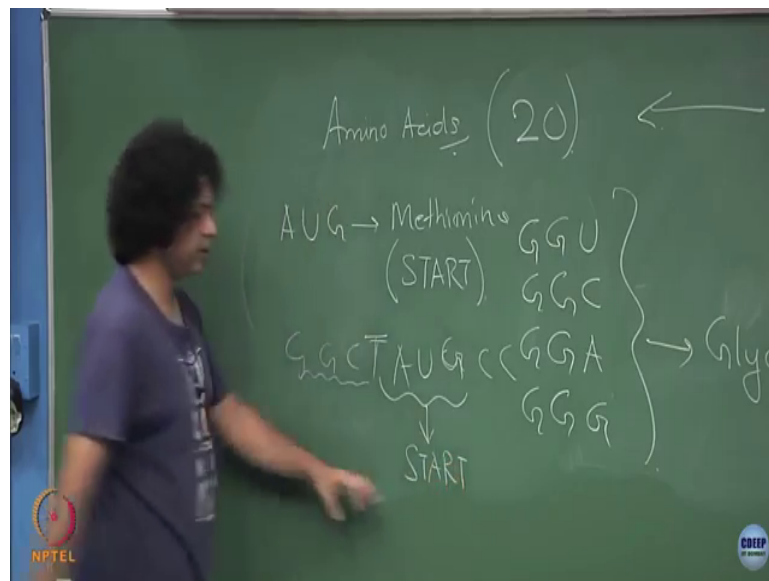 Amino Acids (20)
AUG → Methionine
(START)
GGU
GGC
GGA
GGG
→ Glyc
GGCTAUGCC
START
NPTEL
CDEEP
IIT BOMBAY